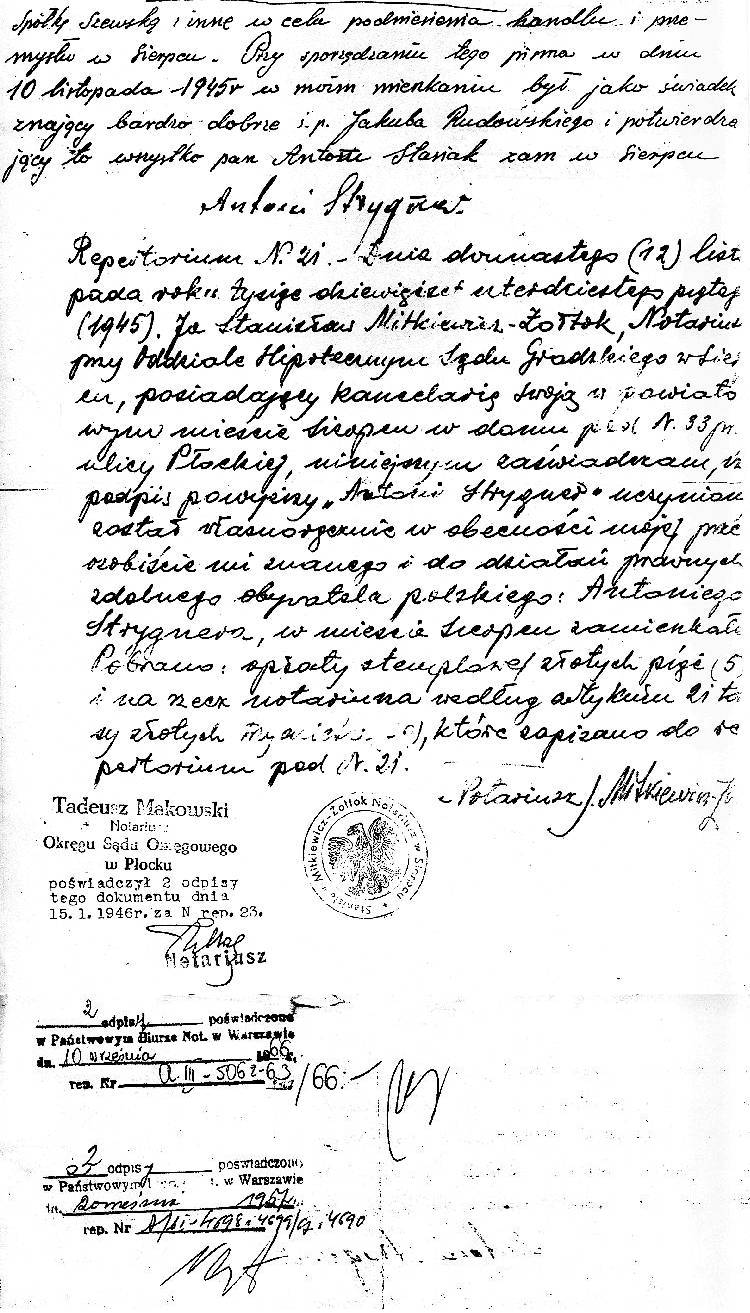 Spółkę Szewską i inne w celu podniesienia handlu i prze-
mysłu w Sierpcu. Przy sporządzaniu tego pisma w dniu
10 listopada 1945r w moim mieszkaniu był jako świadek
znający bardzo dobrze ś.p. Jakuba Rudowskiego i potwierdza
jący to wszystko pan Antoni Stasiak zam w Sierpcu
Antoni Strygner.
Repertorium N. 21. - Dnia dwunastego (12) listo
pada roku tysiąc dziewięćset czterdziestego piąteg
(1945). Ja Stanisław Mitkiewicz-Żołtok, Notariusz
przy Oddziale Hipotecznym Sądu Grodzkiego w Sier
cu, posiadający kancelarię swoją w powiato
wym mieście Sierpcu w domu pod N. 33 pr
ulicy Płockiej, niniejszym zaświadczam, iż
podpis powyższy „Antoni Strygner" uczyniony
został własnoręcznie w obecności mojej prze
osobiście mi znanego i do działań prawnych
zdolnego obywatela polskiego: Antoniego
Strygnera, w mieście Sierpcu zamieszkałe
Pobrano: opłaty stemplowej złotych pięć (5
i na rzecz notariusza według artykułu 21 ta
sy złotych które zapisano do re
pertorium pod N. 21.
Notariusz S. Mitkiewicz-Żo
Tadeusz Makowski
Notariusz
Okręgu Sądu Okręgowego
w Płocku
poświadczył 2 odpisy
tego dokumentu dnia
15.1.1946r. za N rep. 23.
Notariusz
Stanisław Mitkiewicz-Żołtok Notariusz w Sierpcu
2 odpisy poświadczono
w Państwowym Biurze Not. w Warszawie
dn. 10 września 1966 r.
rep. Nr A III-5062-63/66.-
2 odpisy poświadczono
w Państwowym w Warszawie
1957
rep. Nr 4698 i 4699 i 4690